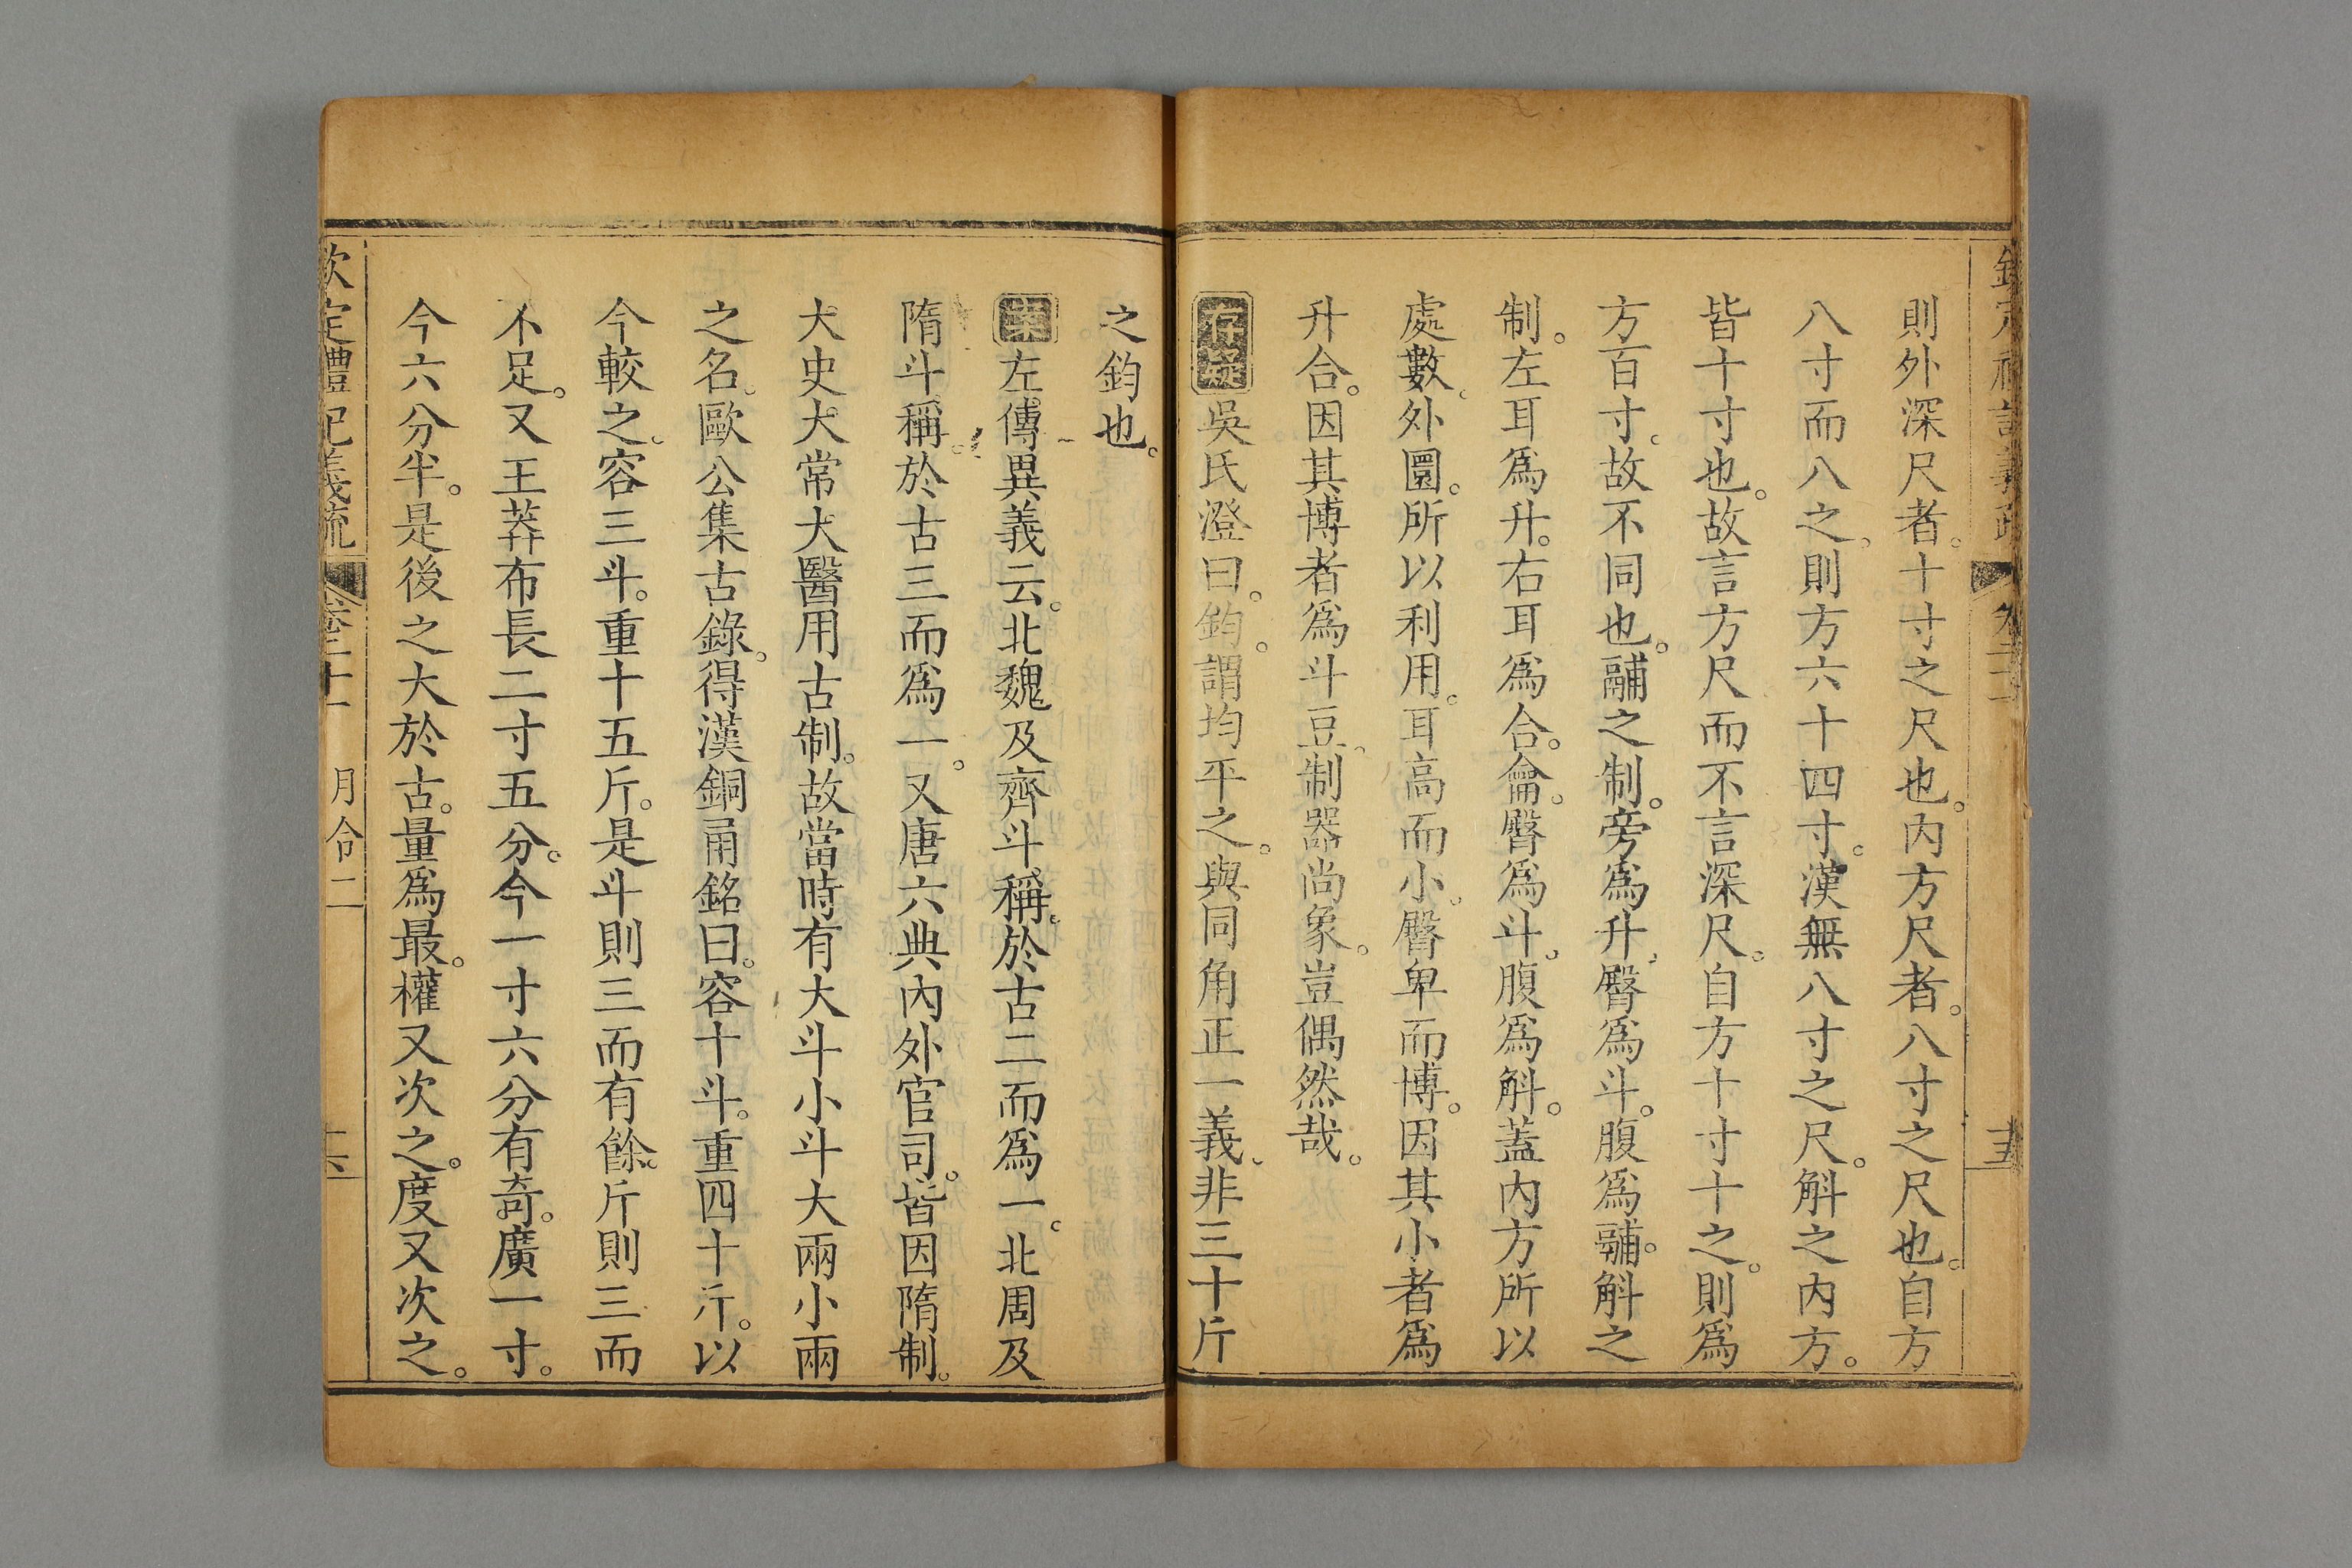 則外深尺者。十寸之尺也。内方尺者。八寸之尺也。自方
八寸而八之。則方六十四寸。漢無八寸之尺。斛之内方。
皆十寸也。故言方尺而不言深尺。自方十寸十之。則爲
方百寸。故不同也。鬴之制。旁爲升。臀爲斗。腹爲鬴。斛之
制。左耳爲升。右耳爲合。龠。臀爲斗。腹爲斛。蓋内方所以
處數。外圜。所以利用。耳高而小。臀卑而博。因其小者爲
升合。因其博者爲斗豆。制器尚象。豈偶然哉。
存疑 吳氏澄曰。鈞。謂均平之。與同角正一義。非三十斤
之鈞也。
案 左傳異義云。北魏及齊斗稱。於古二而爲一。北周及
隋斗稱。於古三而爲一。又唐六典內外官司。皆因隋制。
大史大常大醫用古制。故當時有大斗小斗大兩小兩
之名。歐公集古錄。得漢銅甬銘曰。容十斗。重四十斤。以
今較之。容三斗。重十五斤。是斗則三而有餘。斤則三而
不足。又王莽布長二寸五分。今一寸六分有奇。廣一寸。
今六分半。是後之大於古。量爲最。權又次之。度又次之。
欽定禮記義疏 卷二十一 月令二